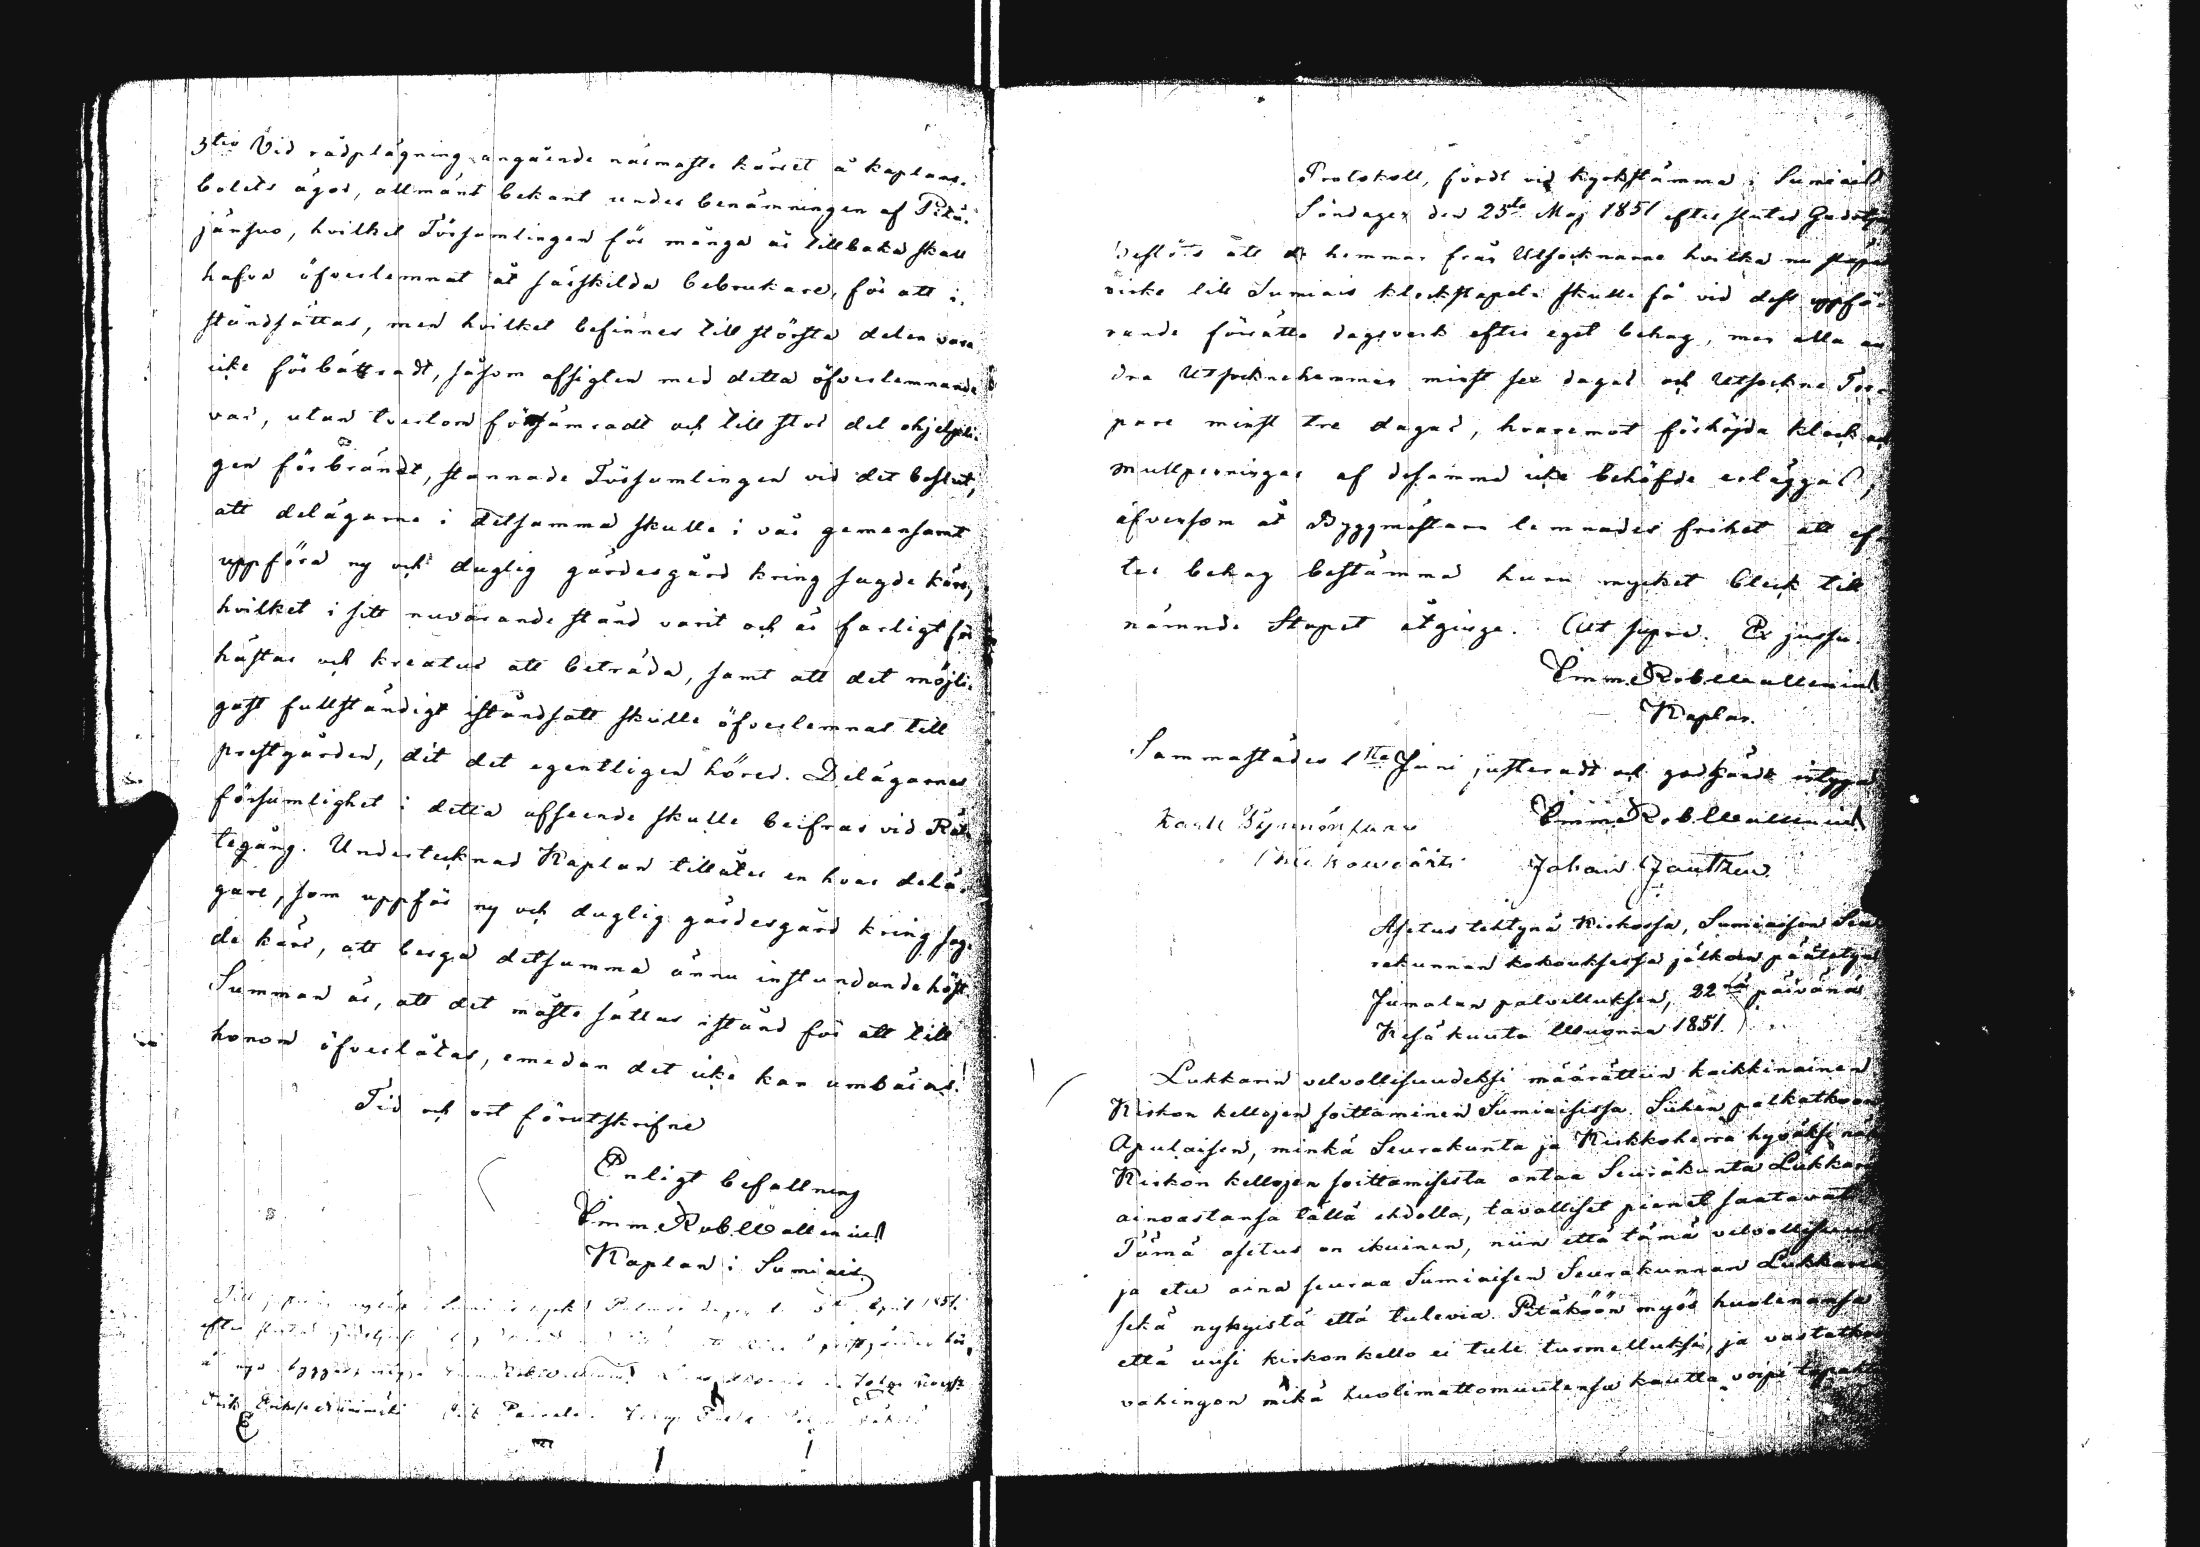 3tio Vid rådplägning angående närmaste kärret å kaplans-
bolets ägor, allmänt bekant under benämningen af Pitkä-
jänsuo, hvilket Församlingen för många år tillbaka skall
hafva öfverlemnat åt särskilda bebrukare, för att i-
ståndsättas, men hvilket befinnes till största delen vara
icke förbättradt, såsom afsigten med detta öfverlemnande
var, utan tvertom försämradt och till stor del ohjelpli-
gen förbrändt, stannade Församlingen vid det beslut,
att delägarne i detsamma skulle i vår gemensamt
uppföra ny och duglig gärdesgård kring sagde kärr,
hvilket i sitt nuvarande stånd varit och är farligt för
hästar och kreatur att beträda, samt att det möjli-
gast fullständigt iståndsatt skulle öfverlemnas till
prestgården, dit det egentligen hörer. Delägarnes
försumlighet i detta afseende skulle beifras vid Rät-
tegång. Undertecknad Kaplan tillåter en hvar delä-
gare, som uppför ny och duglig gärdesgård kring sag-
de kärr, att berga detsamma ännu instundande höst.
Summan är, att det måste sättas istånd för att till
honom öfverlåtas, emedan det icke kan umbäras.
Tid och ort förutskrifne
Enligt befallning
Emm. Rob. Wallenius
Kaplan i Sumiais.
April 1851.
efter
prestgården
Protokoll, fördt vid kyrkstämma i Sumiais
Söndagen den 25te Maj 1851 efter slutad Gudstjenst
Beslöts att de hemman från Utsocknarne hvilka nu släpat
virke till Sumiais klockstapel skulle få vid dess uppfö-
rande förrätta dagsverk efter eget behag, men alla an-
dra Utsockne hemman minst sex dagar och Utsockne Tor-
pare minst tre dagar, hvaremot förhöjda klock och
Mullpenningar af desamma icke behöfde erläggas,
äfvensom åt Byggmästaren lemnades frihet att ef-
ter behag bestämma huru mycket bleck till
nämnde Stapel åtginge. Ut supra. Ex jussu.
Emm. Rob. Wallenius
Kaplan.
Sammastädes 1sta Juni justeradt och godkändt intygar
Emm. Rob. Wallenius
Johan
Asetus tehtynä Kirkossa, Sumiaisen Seu-
rakunnan kokouksessa jälkeen päätetyn
Jumalan palvelluksen, 22nä päivänä
Kesäkuuta Wuonna 1851.
Lukkarin velvollisuudeksi määrättiin kaikkinainen
Kirkon kellojen soittaminen Sumiaisissa. Siihen palkatkoon
Apulaisen, minkä Seurakunta ja Kirkkoherra hyväksi
Kirkon kellojen soittamisesta antaa Seurakunta Lukkarille
ainoastansa tällä ehdolla, tavalliset pienet saatavat.
Tämä asetus on ikuinen, niin että tämä velvollisuus
ja etu aina seuraa Sumiaisen Seurakunnan Lukkaria
sekä nykyistä että tulevia. Pitäköön myös huolenansa
että uusi kirkonkello ei tule turmelluksi, ja vastatkoon
vahingon mikä huolimattomuutensa kautta voipi tapahtua